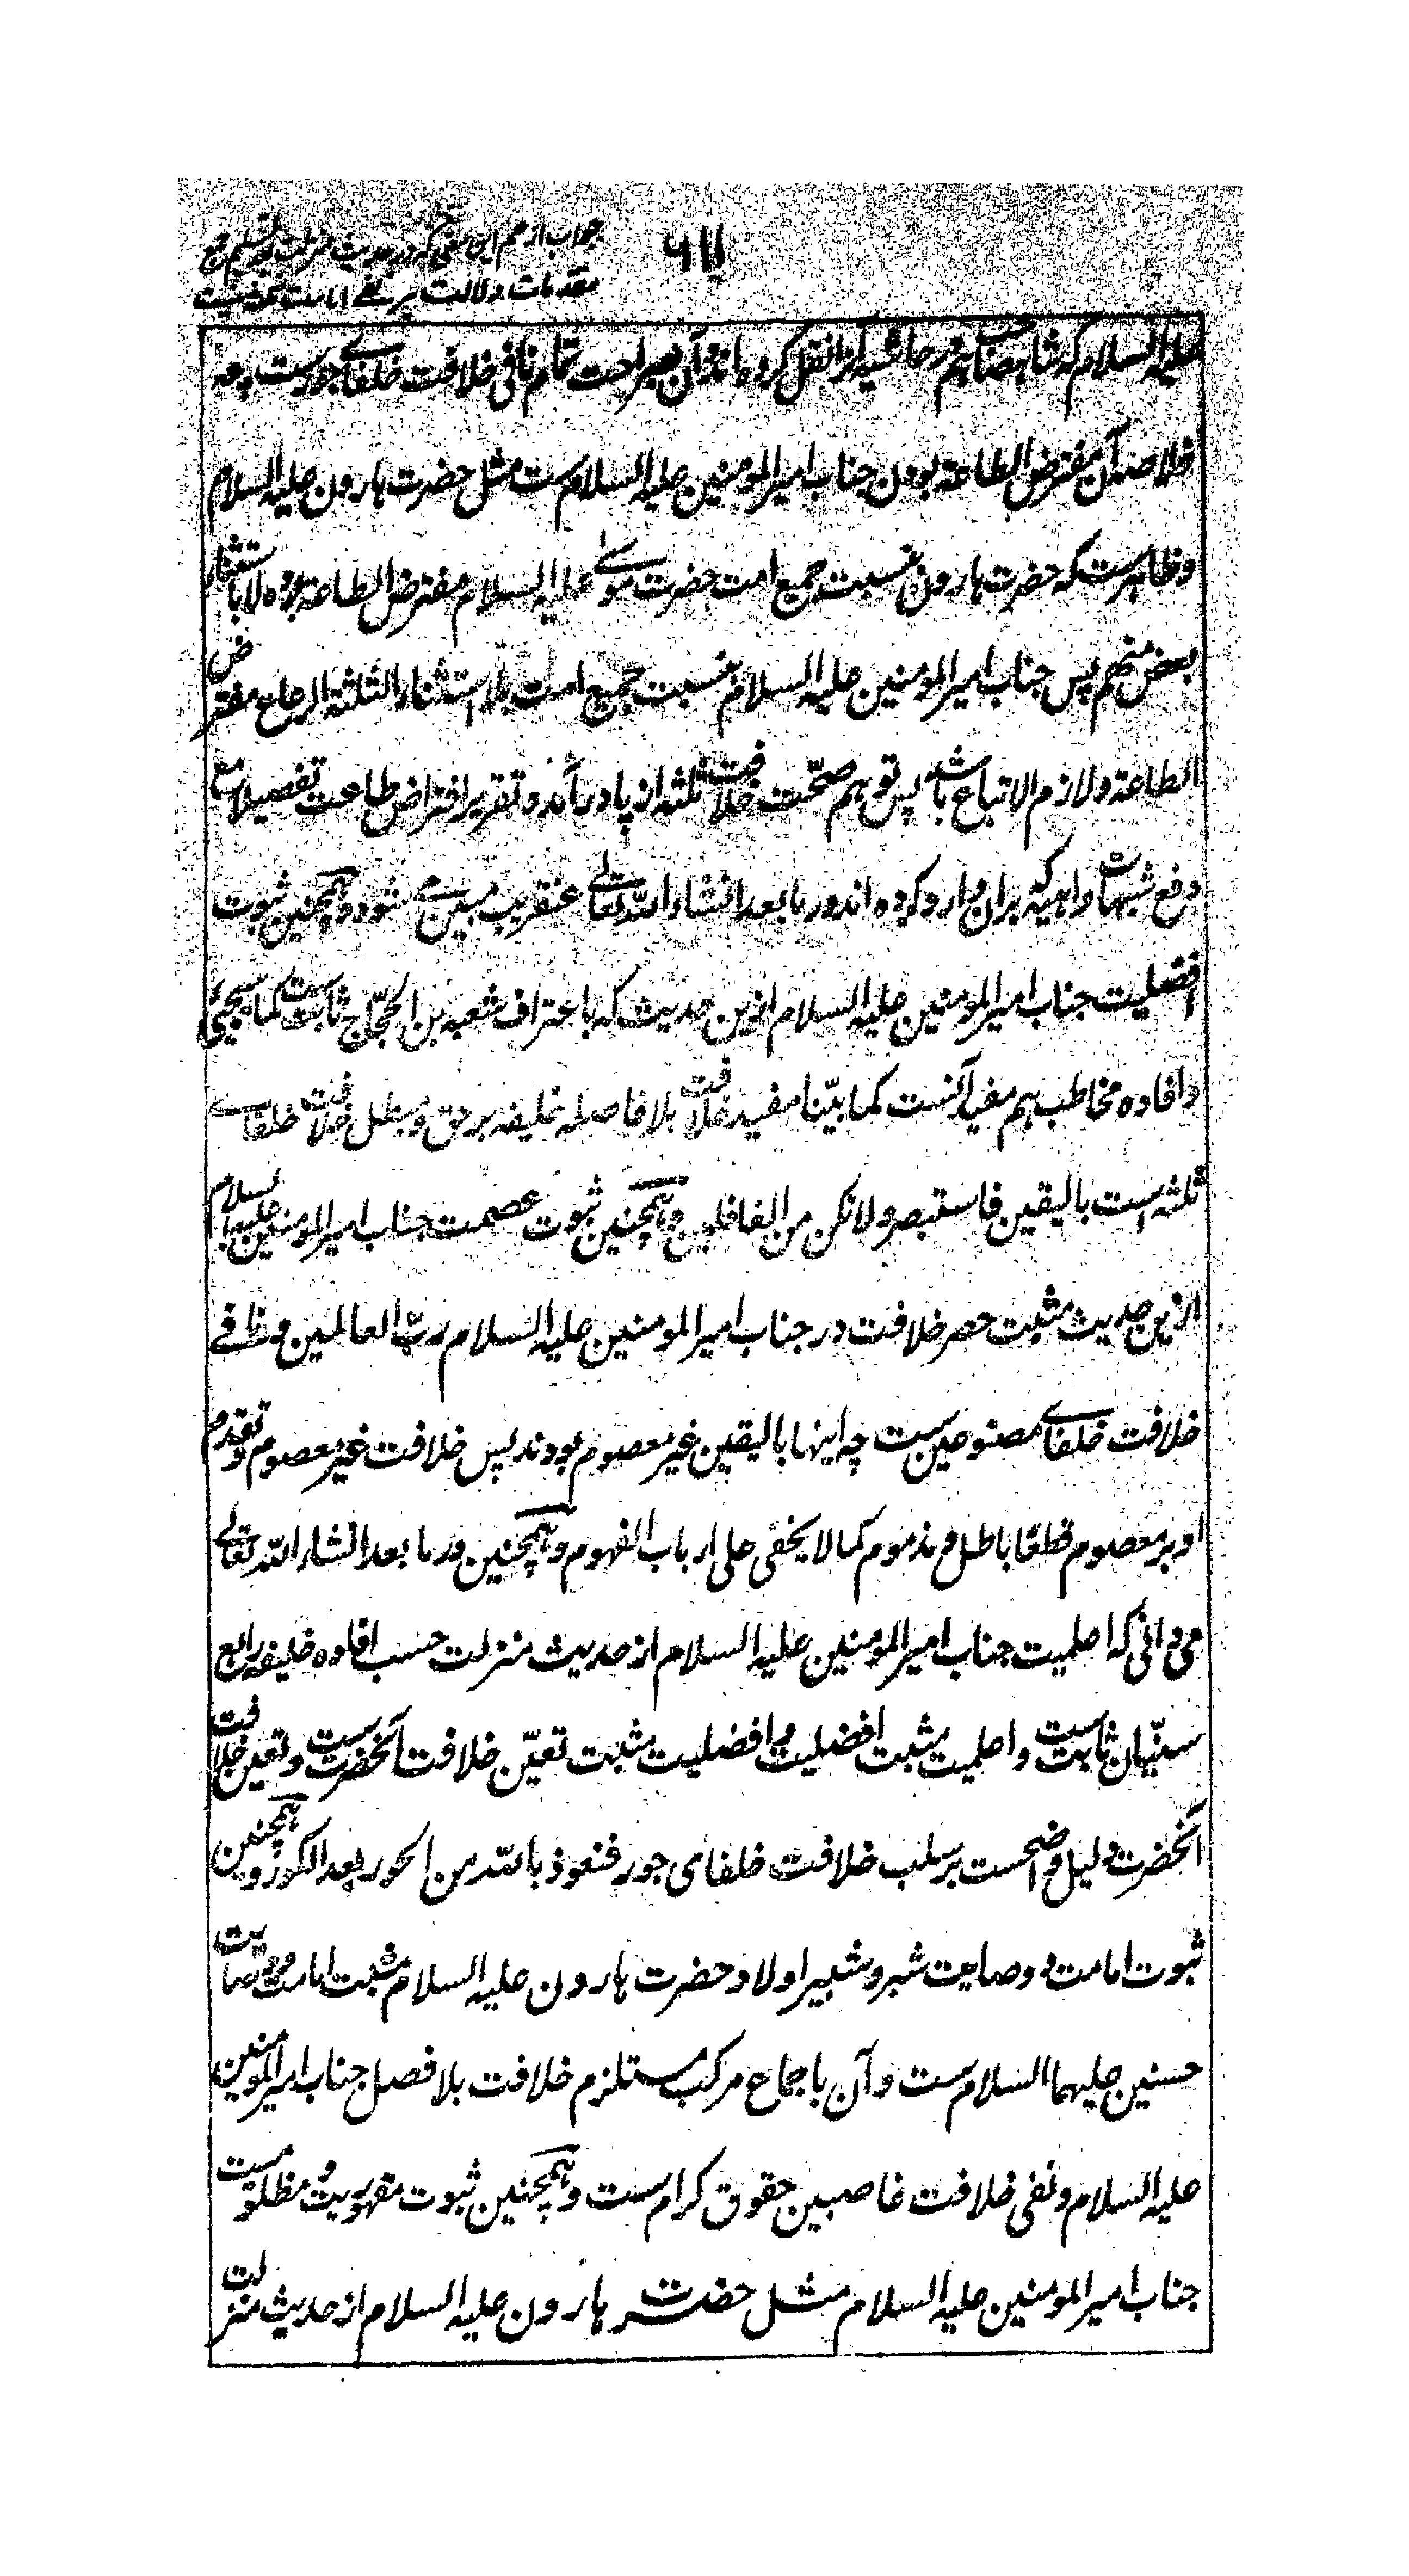 ۶۱۱
جواب از زعم این معنی که در حدیث منزلت بعد تسلیم جمیع
مقدمات دلالت بر نفی امامت نیست
علیه السلام که شاهصاحب هم در حاشیه آنرا نقل کرده‌اند و آن بصراحت تمام نافی خلافت خلفای جورست چه
خلاصه آن مفترض الطاعة بودن جناب امیرالمومنین علیه السلام ست مثل حضرت هارون علیه السلام
و ظاهرست که حضرت هارون بنسبت جمیع امت حضرت موسی علیه السلام مفترض الطاعة بوده لا باستثناء
بعض منهم پس جناب امیرالمومنین علیه السلام بنسبت جمیع امت بلا استثناء الثلثة الرعاع مفترض
الطاعة و لازم الاتباع باشد پس توهم صحّت خلافت ثلثه از پا درآمد و تقریر افتراض طاعت تفصیلا مع
دفع شبهات واهیه که بران وارد کرده‌اند در ما بعد انشاء الله تعالی عنقریب مبین می شود و همچنین ثبوت
افضلیت جناب امیرالمومنین علیه السلام ازین حدیث که باعتراف شعبه بن الحجّاج ثابت ست کما سیجیٔ
و افاده مخاطب هم مفید آنست کما بیّنا مفید خلافت بلا فاصله خلیفه برحق و مبطل خلافت خلفای
ثلثه است بالیقین فاستبصر ولا تکن من الغافلین و همچنین ثبوت عصمت جناب امیرالمومنین علیه السلام
ازین حدیث مثبت حصر خلافت در جناب امیرالمومنین علیه السلام ربّ العالمین و نافی
خلافت خلفای مصنوعین ست چه اینها بالیقین غیر معصوم بودند پس خلافت غیر معصوم و تقدم
او بر معصوم قطعًا باطل و مذموم کما لا یخفی علی ارباب الفهوم و همچنین در ما بعد انشاء الله تعالی
می دانی که اعلمیت جناب امیرالمومنین علیه السلام از حدیث منزلت حسب افاده خلیفه رابع
سنّیان ثابت ست و اعلمیت مثبت افضلیت و افضلیت مثبت تعیّن خلافت آنحضرت ست و تعین خلافت
آنحضرت دلیل واضحست بر سلب خلافت خلفای جور فنعوذ بالله من الحور بعد الکور و همچنین
ثبوت امامت و وصایت شبر و شبیر اولاد حضرت هارون علیه السلام مثبت امامت و وصایت
حسنین علیهما السلام ست و آن باجماع مرکب مستلزم خلافت بلا فصل جناب امیرالمومنین
علیه السلام و نفی خلافت غاصبین حقوق کرام ست و همچنین ثبوت مقهوریت و مظلومیت
جناب امیرالمومنین علیه السلام مثل حضرت هارون علیه السلام از حدیث منزلت